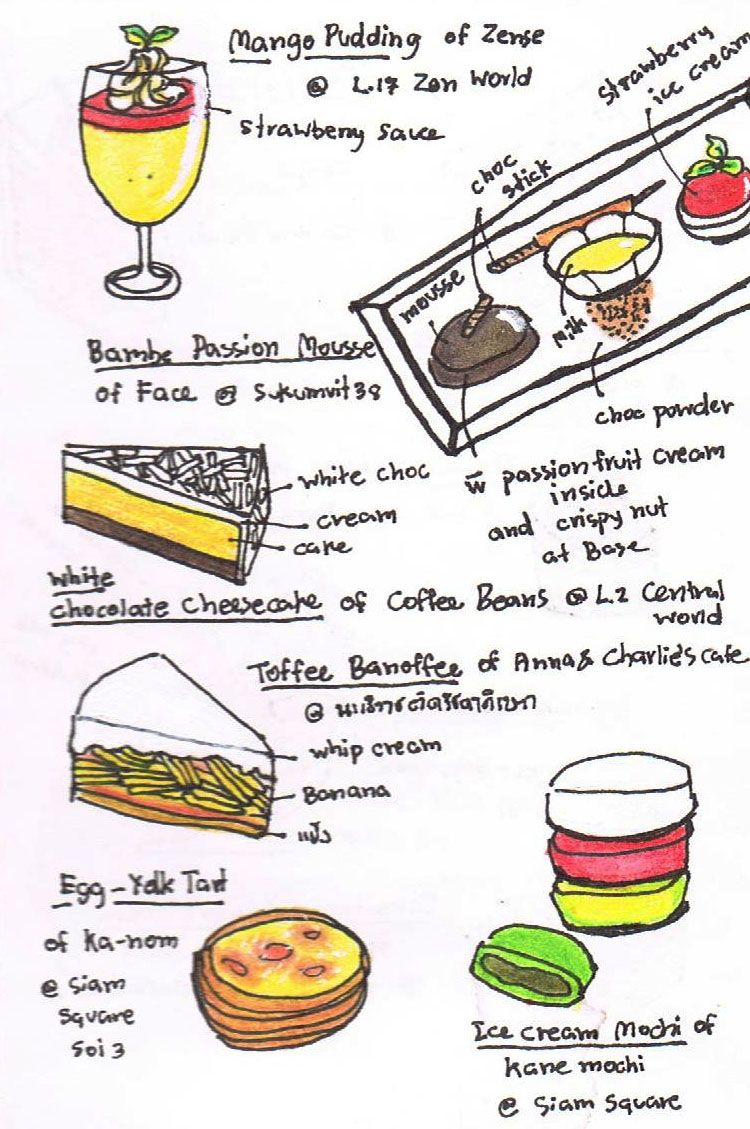 Mango Pudding of Zense
@ L.17 Zen World
strawberry sauce
strawberry
ice cream
choc
stick
mousse
milk
choc powder
Bambe Passion Mousse
of Face @ Sukumvit 38
passion fruit cream
inside
and crispy nut
at Base
white choc
cream
cake
white
chocolate cheesecake of Coffee Beans @ L.2 Central
world
Toffee Banoffee of Anna & Charlie's cafe
@
whip cream
Banana
แป้ง
Egg-Yolk Tart
of Ka-nom
@ Siam
Square
Soi 3
Ice cream Mochi of
Kane mochi
@ Siam Square